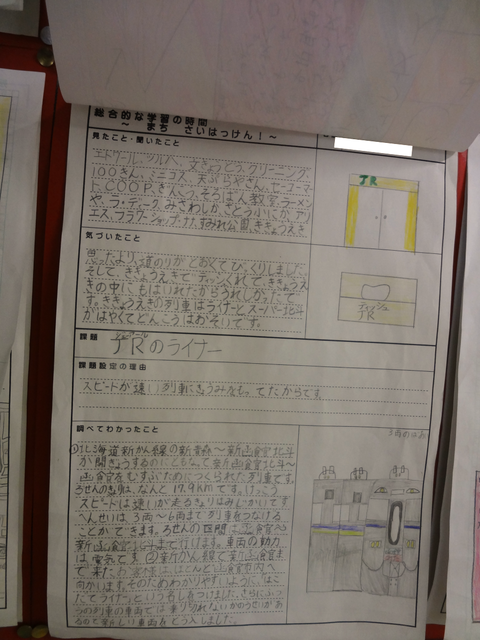 総合的な学習の時間
～ まち さいはっけん！～
見たこと・聞いたこと
クリーニング、
100きん、ミニコス、天ぷらやさん、セーコーマ
ート、COOP、ぎんこう、そろばん教室、ラーメン
や、ラ・ 、みさわしか、さとう小にか、
エス、フラワーショップナナ、すみれ公園、ききょうえき
JR
気づいたこと
思ったより、道のりがとおくてびっくりしました。
そして、ききょうえきでティッシュくれて、ききょうえ
きの中にもはいれたからうれしかったで
す。ききょうえきの列車はライナーとスーパー北斗
がはやくてどんこうはおそいです。
ティッシュ
JR
課題
JRのライナー
課題設定の理由
スピードが速い列車にきょうみをもってたからです。
調べてわかったこと
①北海道新かん線の新青森～新函館北斗
が開ぎょうするのにともなって、新函館北斗～
函館をむすぶためにつくられた列車です。
ろせんのきょりは、なんと17.9kmです。けっこう
スピードは速いが走るきょりはみじかいです。
へんせいは、3両～6両まで列車をつなげる
ことができます。ろせんの区間は函館から
新函館北斗まで行けます。車両の動力
は電気です。②新かん線で新函館まで
来たお客さまはほとんど函館市内へ
向かいます。そのためわかりやすいように、はこ
だてライナーという名しょうをつけました。さらにふつ
うの列車の車両では乗りきれないかのうせいがあ
るので新しい車両をどう入しました。